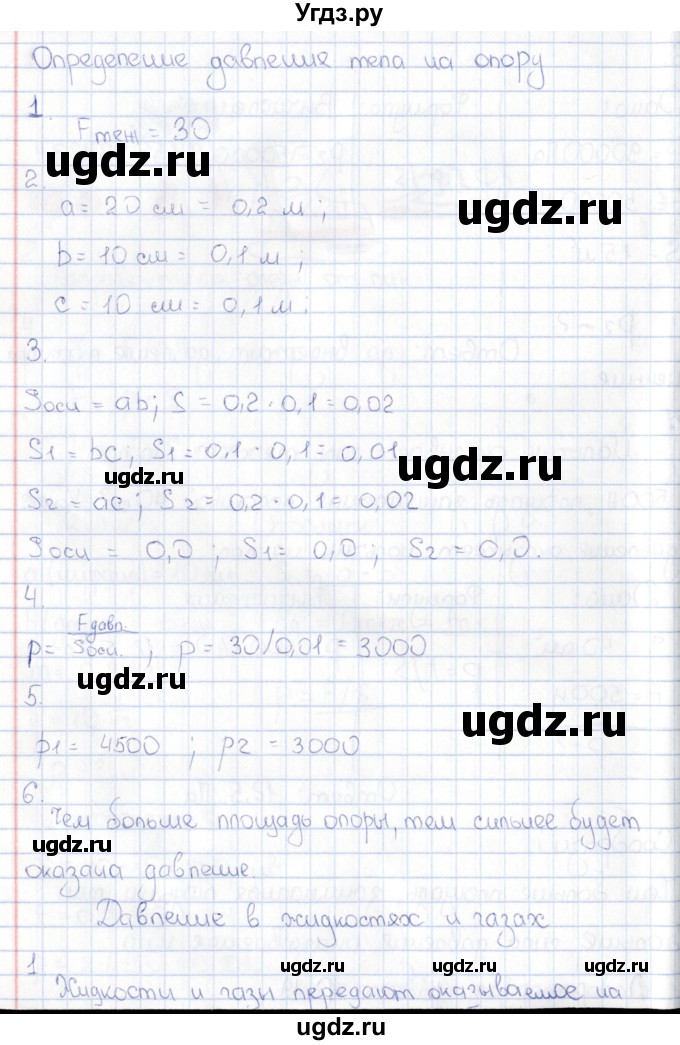 Угдз.ру
Определение давления тела на опору
1.
Fтяж = 30
ugdz.ru
2.
a = 20 см = 0,2 м ;
ugdz.ru
b = 10 см = 0,1 м ;
c = 10 см = 0,1 м ;
3.
Sосн = ab; S = 0,2 · 0,1 = 0,02
S1 = bc; S1 = 0,1 · 0,1 = 0,01
ugdz.ru
ugdz.ru
S2 = ac; S2 = 0,2 · 0,1 = 0,02
Sосн = 0,0 ; S1 = 0,0 ; S2 = 0,0.
4.
p = Fдавл. / Sосн. ; p = 30/0,01 = 3000
ugdz.ru
5.
ugdz.ru
p1 = 4500 ; p2 = 3000
6.
Чем больше площадь опоры, тем сильнее будет
ugdz.ru
оказана давление.
Давление в жидкостях и газах
1
ugdz.ru ugdz.ru ugdz.ru
Жидкости и газы передают оказываемое на
ugdz.ru